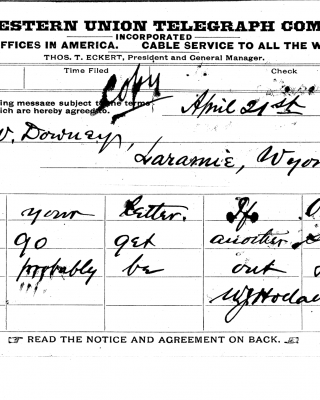 ESTERN UNION TELEGRAPH COM
INCORPORATED
OFFICES IN AMERICA. CABLE SERVICE TO ALL THE W
THOS. T. ECKERT, President and General Manager.
Time Filed Check
Copy
ing message subject to the terms
which are hereby agreed to.
April 21st
W. Downey,
Laramie, Wyo
your letter. If
go get another
probably be out
READ THE NOTICE AND AGREEMENT ON BACK.